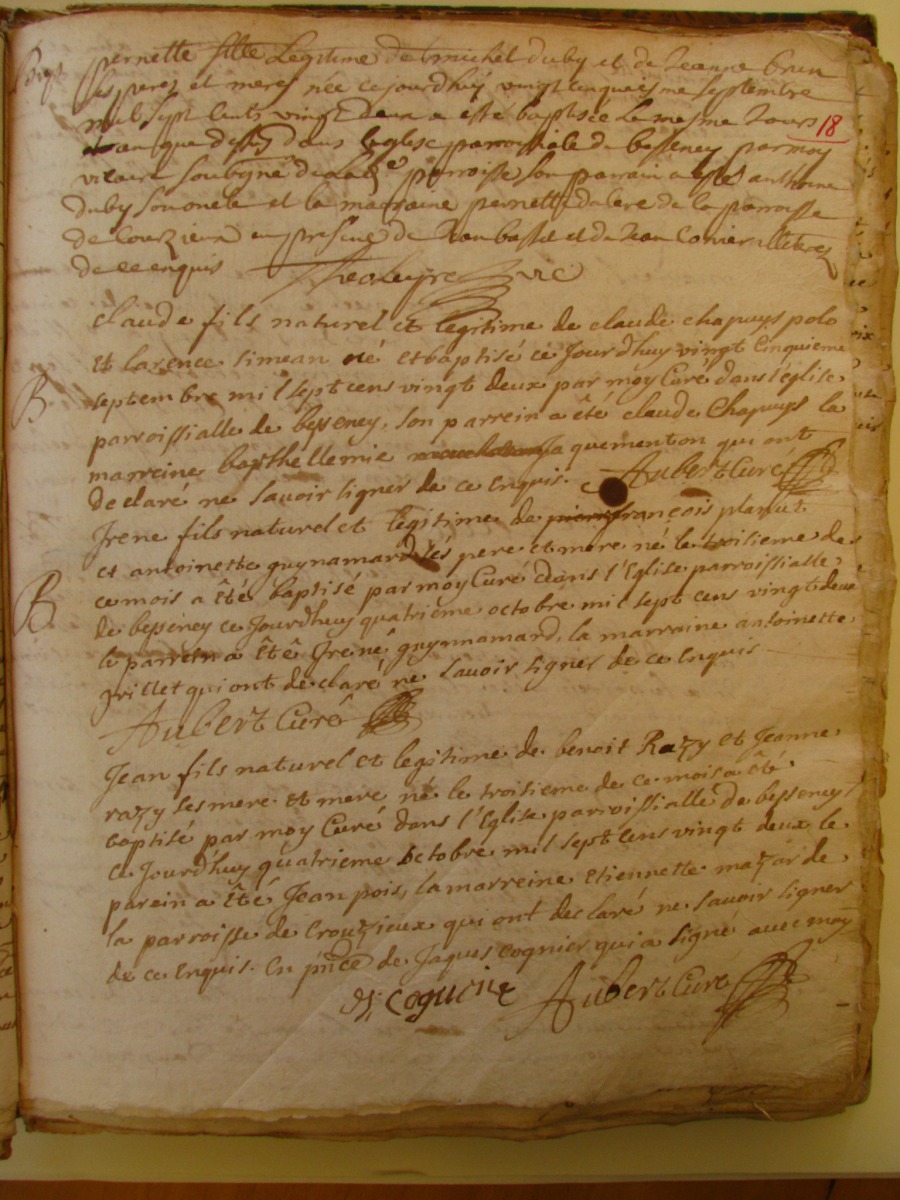 Bapt pernette fille Legitime de michel duby et de Jeanne brun
ses perez et meres née cejourdhuy vingt cinquiesme septembre
mil sept cents vingt deux a esté baptisée le mesme Jours
18
an que dessus dans leglise parroissiale de besseney par moy
vicaire soubigné de la parroisse son parrain a esté anthoine
duby son oncle et la marraine pernette de la parroisse
de Courzieux en presence de Jean et de Jean illiterez
de ce enquis vic
claude fils naturel et legitime de claude chapuys polo
et larence simean né et baptisé ce Jourdhuy vingt cinquieme
B. septembre mil sept cens vingt deux par moy Curé dans l'eglise
parroissialle de besseney, son parrein a été claude Chapuys la
marreine barthellemie Jaquementon qui ont
declaré ne savoir signer de ce enquis. Aubert Curé
Irene fils naturel et legitime de françois planut
et antoinette guynamard ses pere et mere né le troisieme de
ce mois a été baptisé par moy Curé dans l'Eglise parroissialle
B. de besseney ce Jourdhuy quatrieme octobre mil sept cens vingt deux
le parrein a été Irené guynnamard, la marraine antoinette
grillet qui ont declaré ne savoir signer de ce enquis
Aubert Curé
Jean fils naturel et legitime de benoit Razy et Jeanne
razy ses mere et mere né le troisieme de ce mois a été
baptisé par moy Curé dans l'Eglise parroissialle de besseney
ce Jourdhuy quatrieme octobre mil sept cens vingt deux le
parein a été Jean pois, la marreine etiennette mazar de
la parroisse de Crouzieux qui ont declaré ne savoir signer
de ce enquis. En pnce de Jaques cognier qui a signé avec moy
Aubert Curé